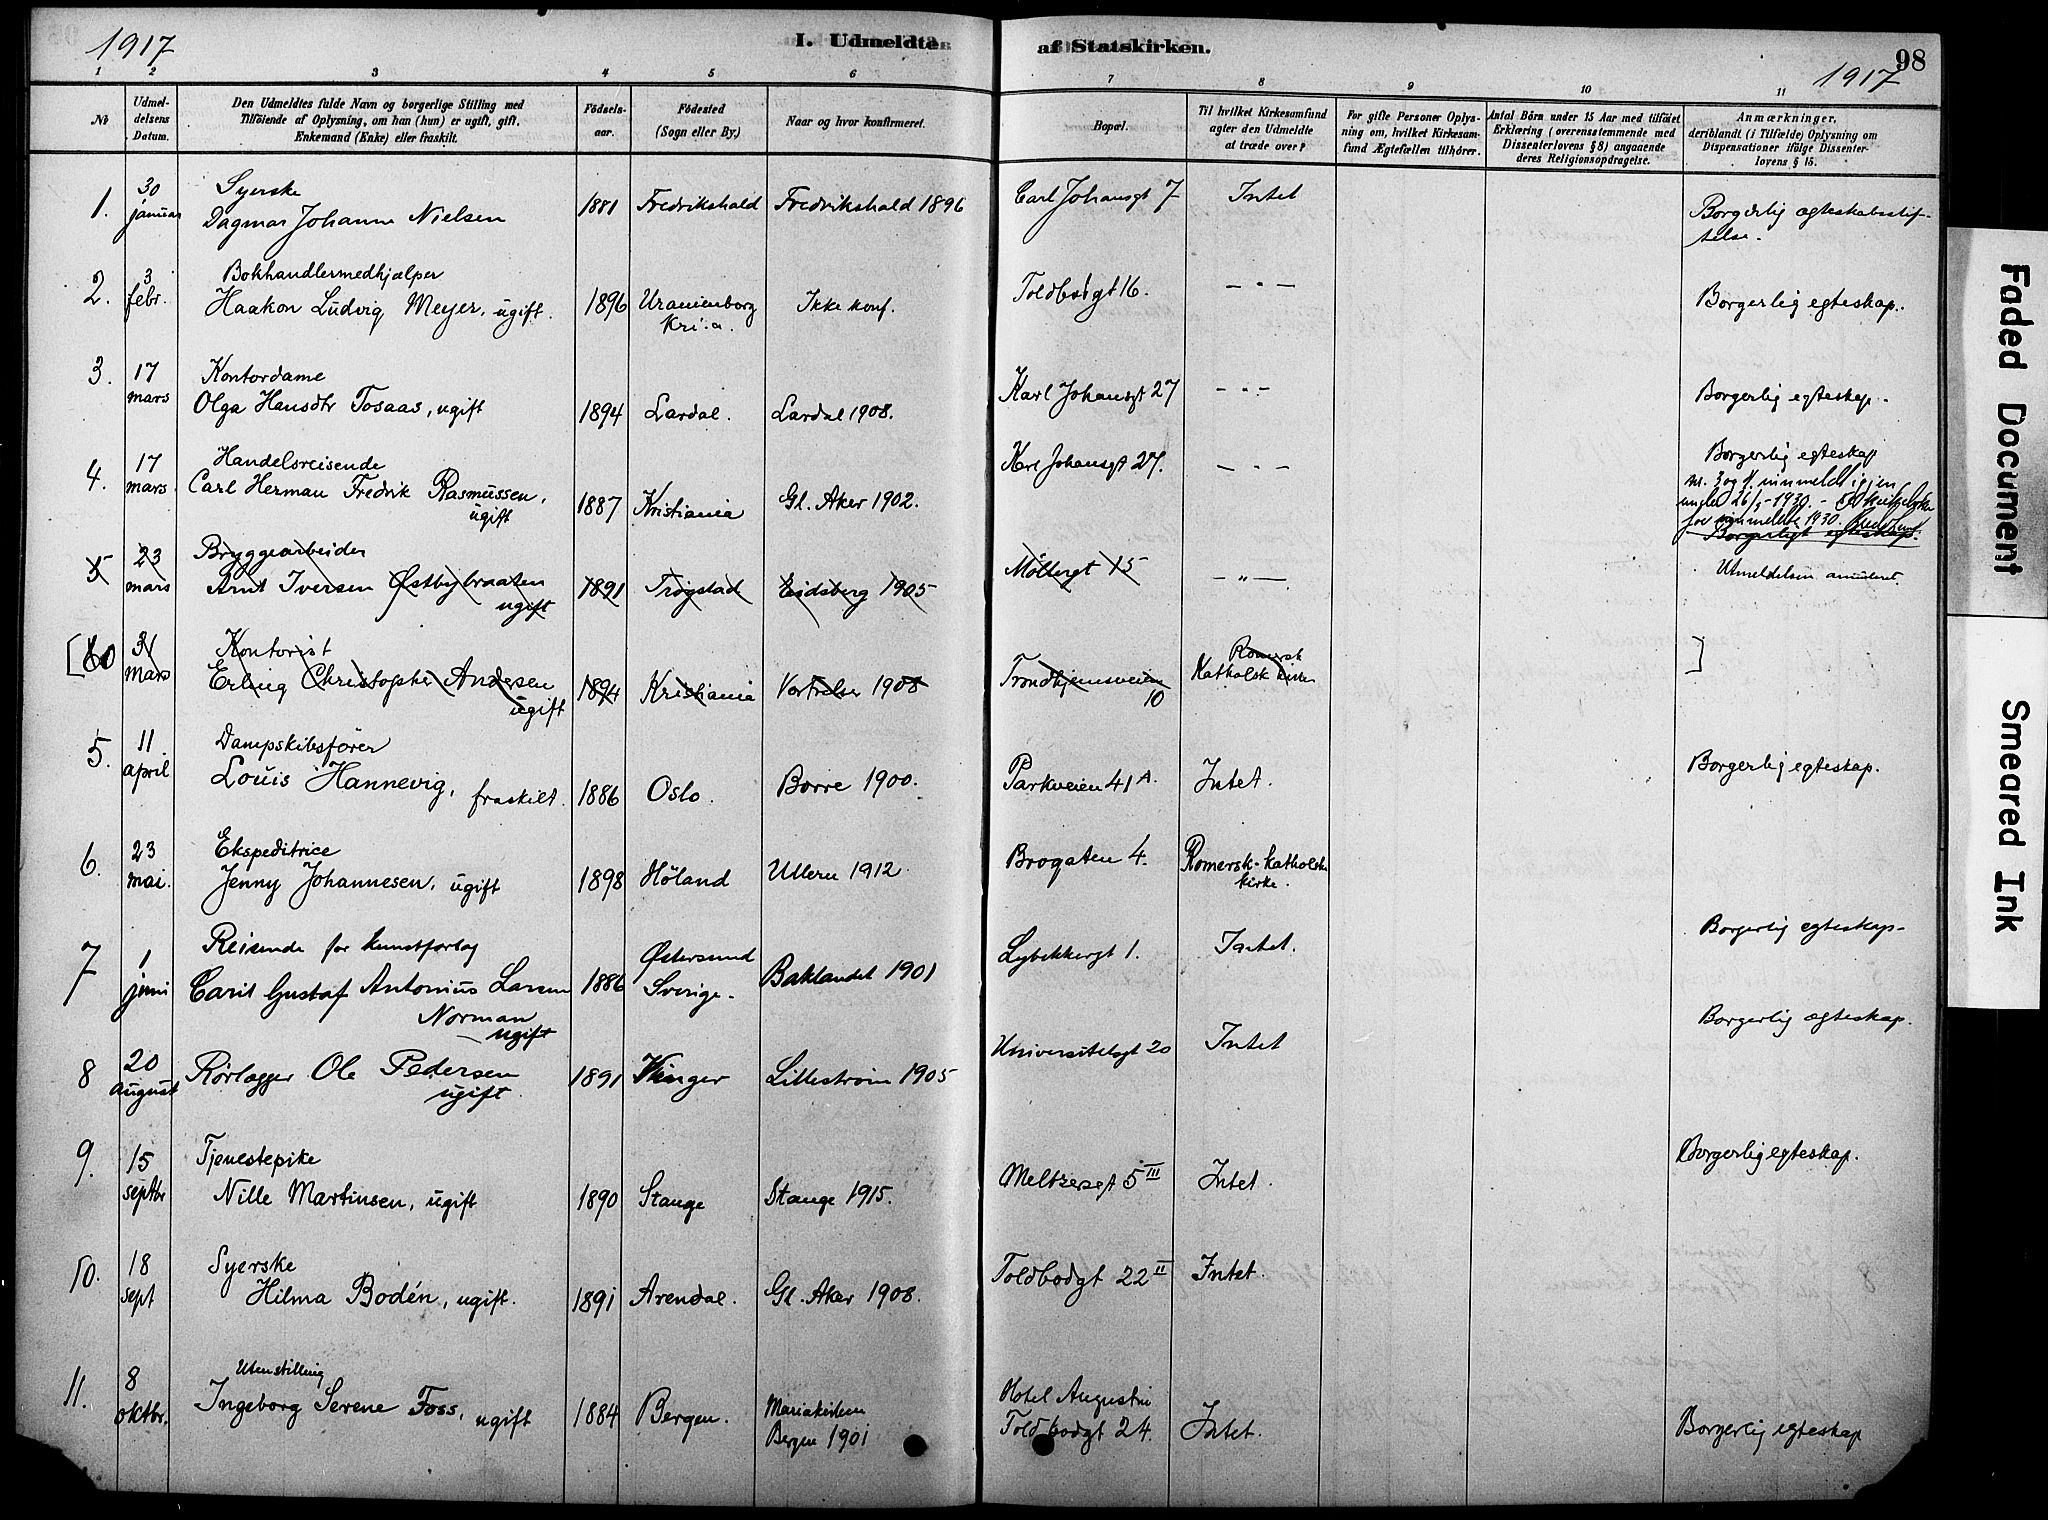 1917
I. Udmeldte af Statskirken.
98
1917
1 2 3 4 5 6 7 8 9 10 11
No
Udmeldelsens Datum.
Den Udmeldtes fulde Navn og borgerlige Stilling med
Tilföiende af Oplysning, om han (hun) er ugift, gift,
Enkemand (Enke) eller fraskilt.
Födselsaar.
Födested
(Sogn eller By.)
Naar og hvor konfirmeret.
Bopæl.
Til hvilket Kirkesamfund
agter den Udmeldte
at træde over?
For gifte Personer Oplysning om, hvilket Kirkesamfund Ægtefællen tilhörer.
Antal Börn under 15 Aar med tilföiet
Erklæring (overensstemmende med
Dissenterlovens § 8) angaaende
deres Religionsopdragelse.
Anmærkninger,
deriblandt (i Tilfælde) Oplysning om
Dispensationer ifölge Dissenterlovens § 15.
1. 30 januar
Syerske
Dagmar Johanne Nielsen
1881 Fredrikshald Fredrikshald 1896
Carl Johansgt 7 Intet
Borgerlig ægteskabsstiftelse.
2. 3 febr.
Bokhandlermedhjælper
Haakon Ludvig Meyer, ugift.
1896 Uranienborg Kri.a. Ikke konf.
Toldbodgt 16. — " —
Borgerlig egteskap.
3. 17 mars
Kontordame
Olga Hansdtr Tosaas, ugift
1894 Lardal. Lardal 1908.
Karl Johansgt 27 — " —
Borgerlig egteskap.
4. 17 mars.
Handelsreisende
Carl Herman Fredrik Rasmussen,
ugift
1887 Kristiania Gl. Aker 1902.
Karl Johansgt 27. — " —
Borgerlig egteskap
nr. 3 og 4. innmeldt igjen
under 26/5 - 1930. -
for innmeldte 1930.
Borgerligt egteskap.
5 23 mars
Bryggearbeider
Arnt Iversen Østbybraaten
ugift
1891 Trøgstad Eidsberg 1905
Møllergt 15 — " —
Utmeldelsen annulleret.
[ 31 mars
Kontorist
Erling Christopher Andersen
ugift
1894 Kristiania Vor Frelser 1908
Trondhjemsveien
10
Romersk
Katholsk kirke
]
5. 11 april
Dampskibsfører
Louis Hannevig, fraskilt.
1886 Oslo. Borre 1900.
Parkveien 41 A. Intet.
Borgerlig egteskap.
6. 23 mai.
Ekspeditrice
Jenny Johannesen, ugift
1898 Höland Ullern 1912
Brogaten 4. Romersk-katholske
kirke.
7 1 juni
Reisende for kunstforlag
Carit Gustaf Antonius Larsen
Norman
ugift
1886 Østersund
Sverige.
Baklandet 1901
Lybekkergt 1. Intet.
Borgerlig egteskap.
8 20 august
Rørlægger Ole Pedersen
ugift.
1891 Vinger Lillestrøm 1905
Universitetsgt 20 Intet
Borgerlig ægteskap.
9. 15 septbr
Tjenestepike
Nille Martinsen, ugift
1890 Stange Stange 1915.
Meltzersgt 5 III Intet.
Borgerlig egteskap.
10. 18 sept
Syerske
Hilma Bodén, ugift.
1891 Arendal. Gl. Aker 1908.
Toldbodgt 22 II Intet.
11. 8 oktbr.
Uten stilling
Ingeborg Serene Foss, ugift
1884 Bergen. Mariakirken
Bergen 1901
Hotel Augustin
Toldbodgt 24. Intet.
Borgerlig egteskap
Faded Document
Smeared Ink